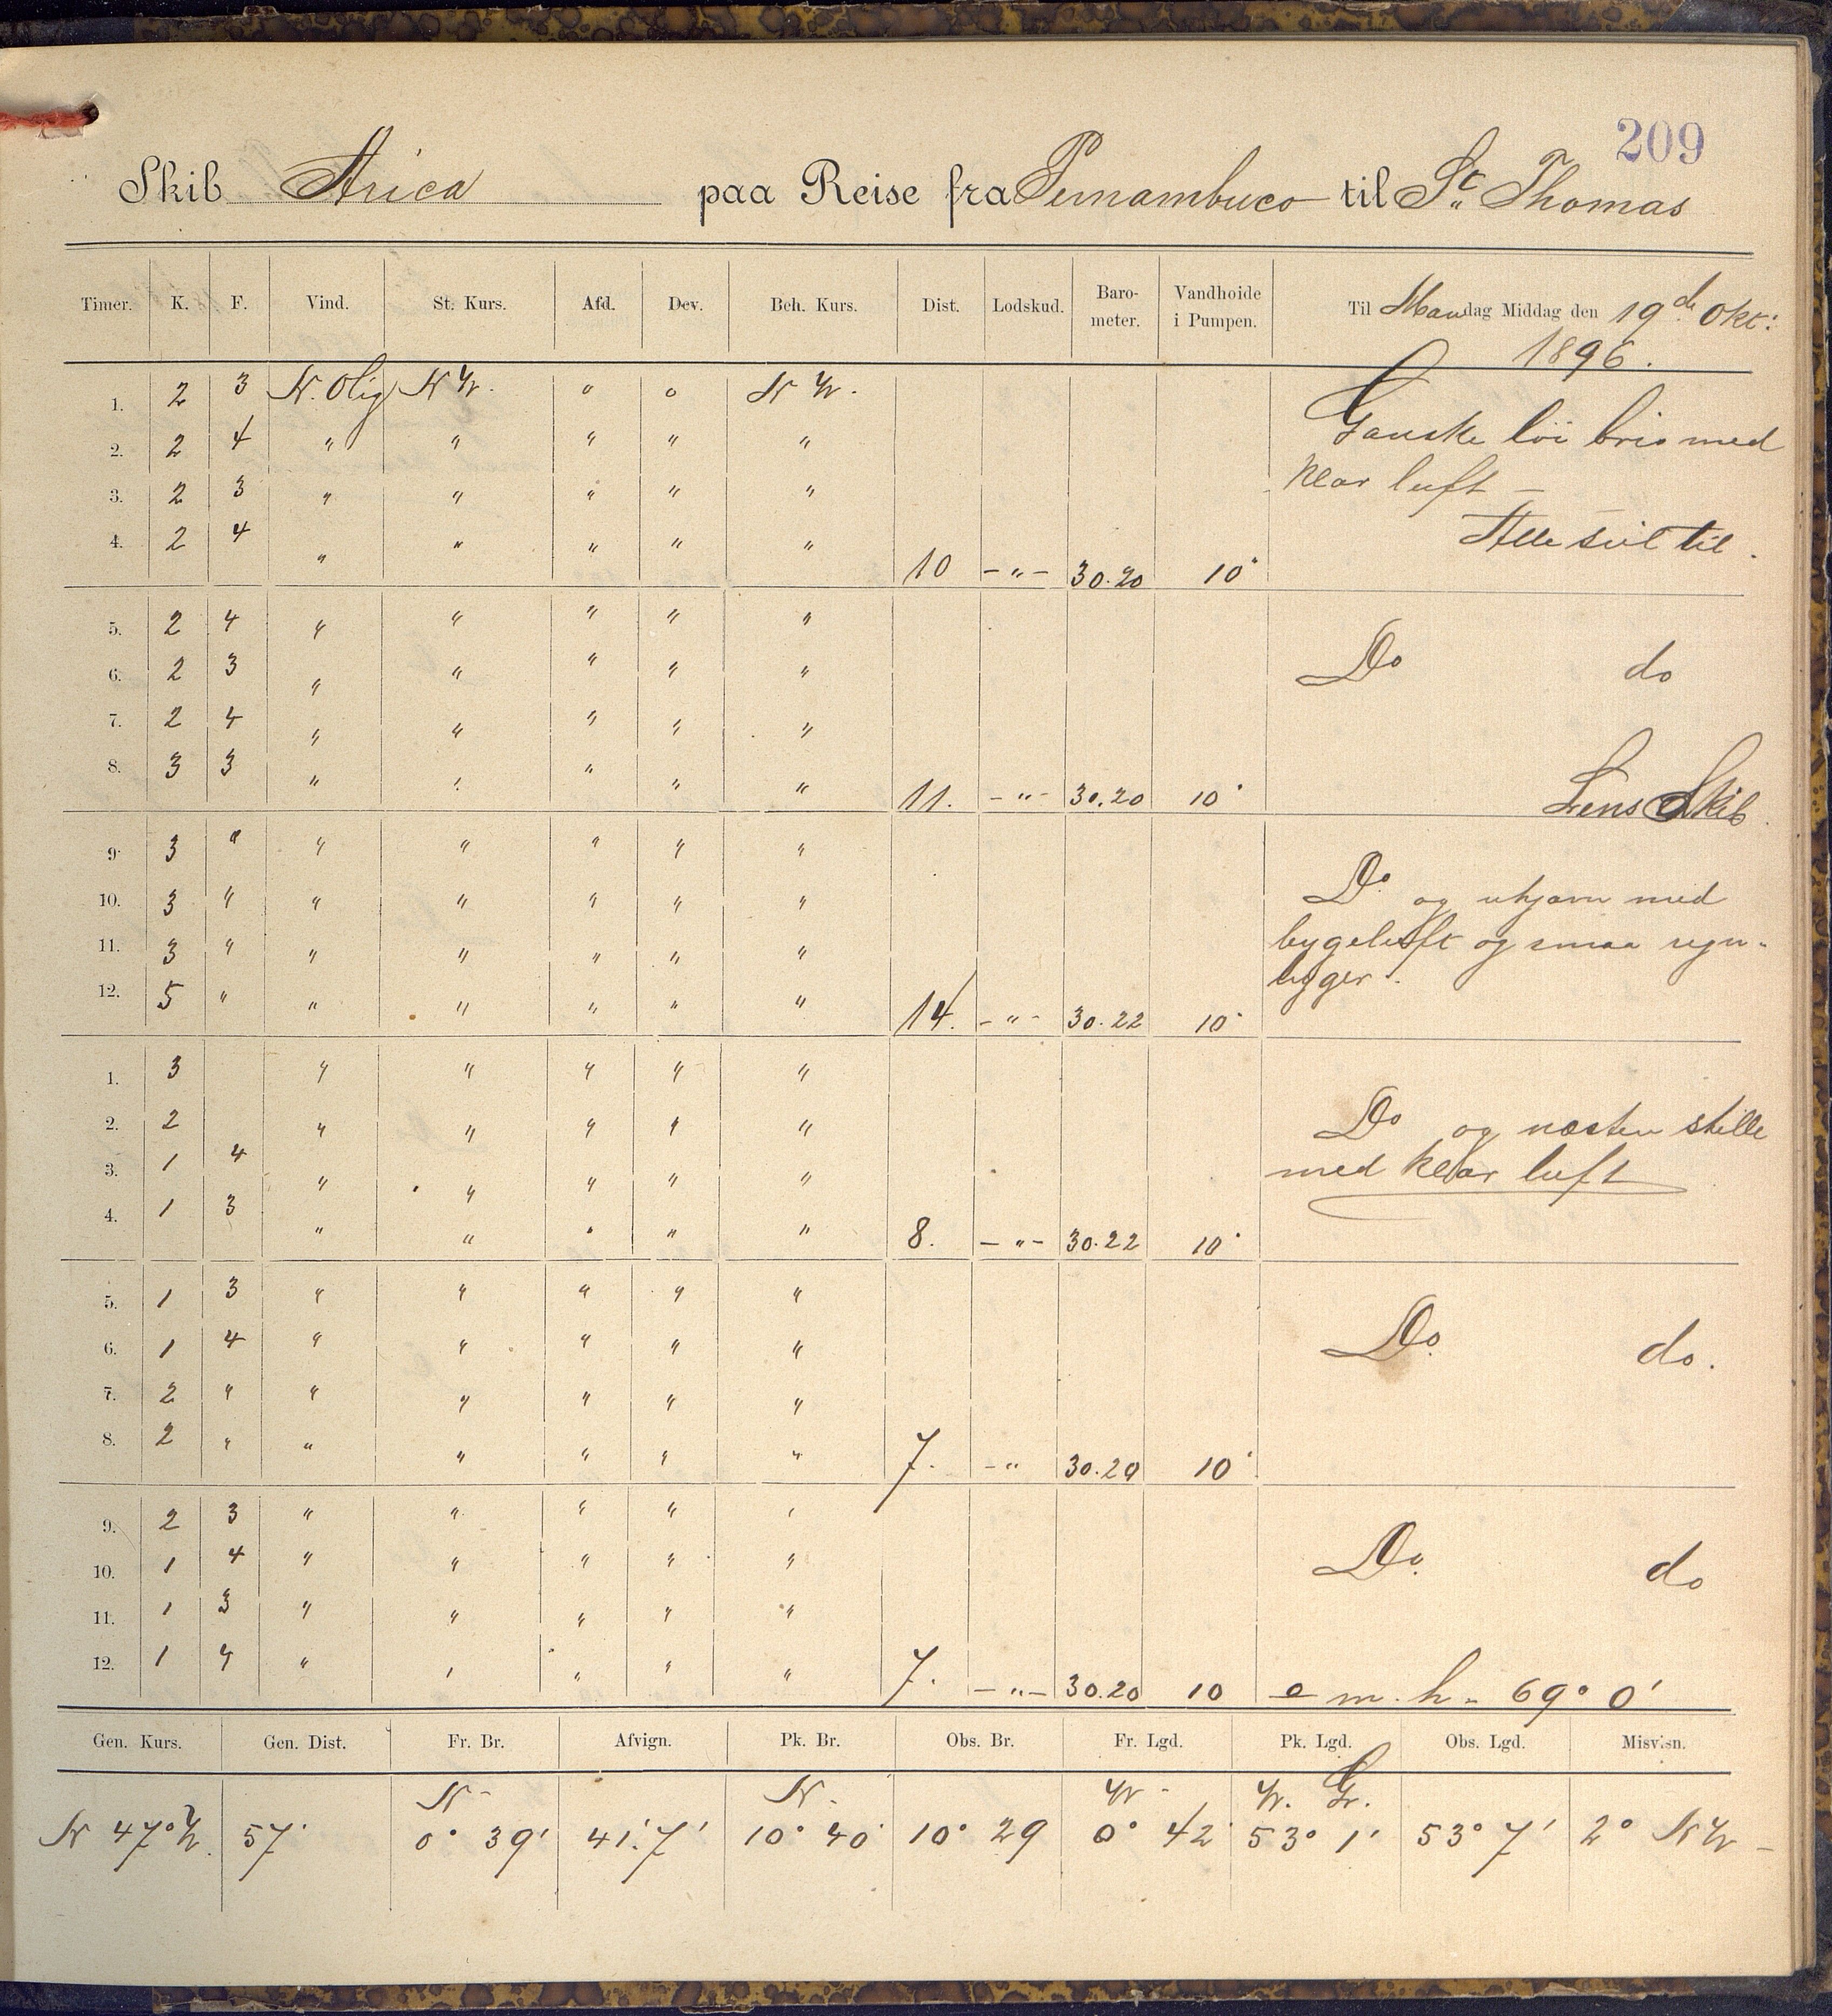 209
Skib Arica paa Reise fra Pernambuco til St Thomas
Timer. K. F. Vind. St. Kurs. Afd. Dev. Beh. Kurs. Dist. Lodskud. Baro- meter. Vandhoide i Pumpen. Til Mandag Middag den 19de Okt: 1896.
1. 2 3 N. Olig N W. " o N W.
2. 2 4 " " " " "
3. 2 3 " " " " "
4. 2 4 " " " " " 10 - " - 30.20 10"
Ganske löi bris med
klar luft -
Alle seil til.
5. 2 4 " " " " "
6. 2 3 " " " " "
7. 2 4 " " " " "
8. 3 3 " " " " " 11. - " - 30.20 10"
Do do
Lens Skib.
9. 3 " " " " " "
10. 3 " " " " " "
11. 3 " " " " " "
12. 5 " " " " " " 14. - " - 30.22 10"
Do og ujevn med
bygeluft og smaa regn-
byger.
1. 3 " " " " "
2. 2 " " " " "
3. 1 4 " " " " "
4. 1 3 " " " " " 8. - " - 30.22 10"
Do og næsten stille
med klar luft
5. 1 3 " " " " "
6. 1 4 " " " " "
7. 2 " " " " " "
8. 2 " " " " " " 7. - " 30.20 10"
Do. do.
9. 2 3 " " " " "
10. 1 4 " " " " "
11. 1 3 " " " " "
12. 1 4 " " " " " 7. - " - 30.20 10
Do. do
m. h. 69° 0'
Gen. Kurs. Gen. Dist. Fr. Br. Afvign. Pk. Br. Obs. Br. Fr. Lgd. Pk. Lgd. Obs. Lgd. Misvisn.
N - N. W - W. Gr.
N 47° W. 57' 0° 39' 41'.7' 10° 40' 10° 29 0° 42' 53° 1' 53° 7' 2° NW -